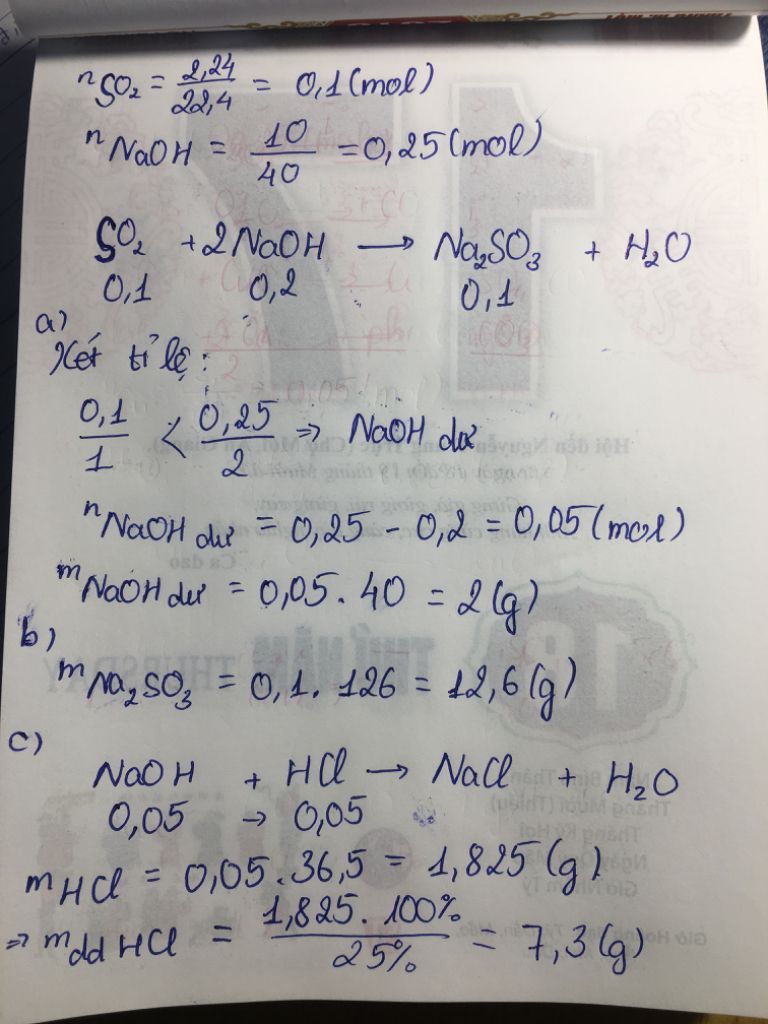 nSO₂ = 2,24/22,4 = 0,1 (mol)
nNaOH = 10/40 = 0,25 (mol)
SO₂ + 2NaOH → Na₂SO₃ + H₂O
0,1 0,2 0,1
a)
Xét tỉ lệ:
0,1/1 < 0,25/2 ⇒ NaOH dư
nNaOH dư = 0,25 - 0,2 = 0,05 (mol)
mNaOH dư = 0,05 . 40 = 2 (g)
b)
mNa₂SO₃ = 0,1 . 126 = 12,6 (g)
c)
NaOH + HCl → NaCl + H₂O
0,05 → 0,05
mHCl = 0,05 . 36,5 = 1,825 (g)
⇒ mdd HCl = 1,825 . 100%/25% = 7,3 (g)